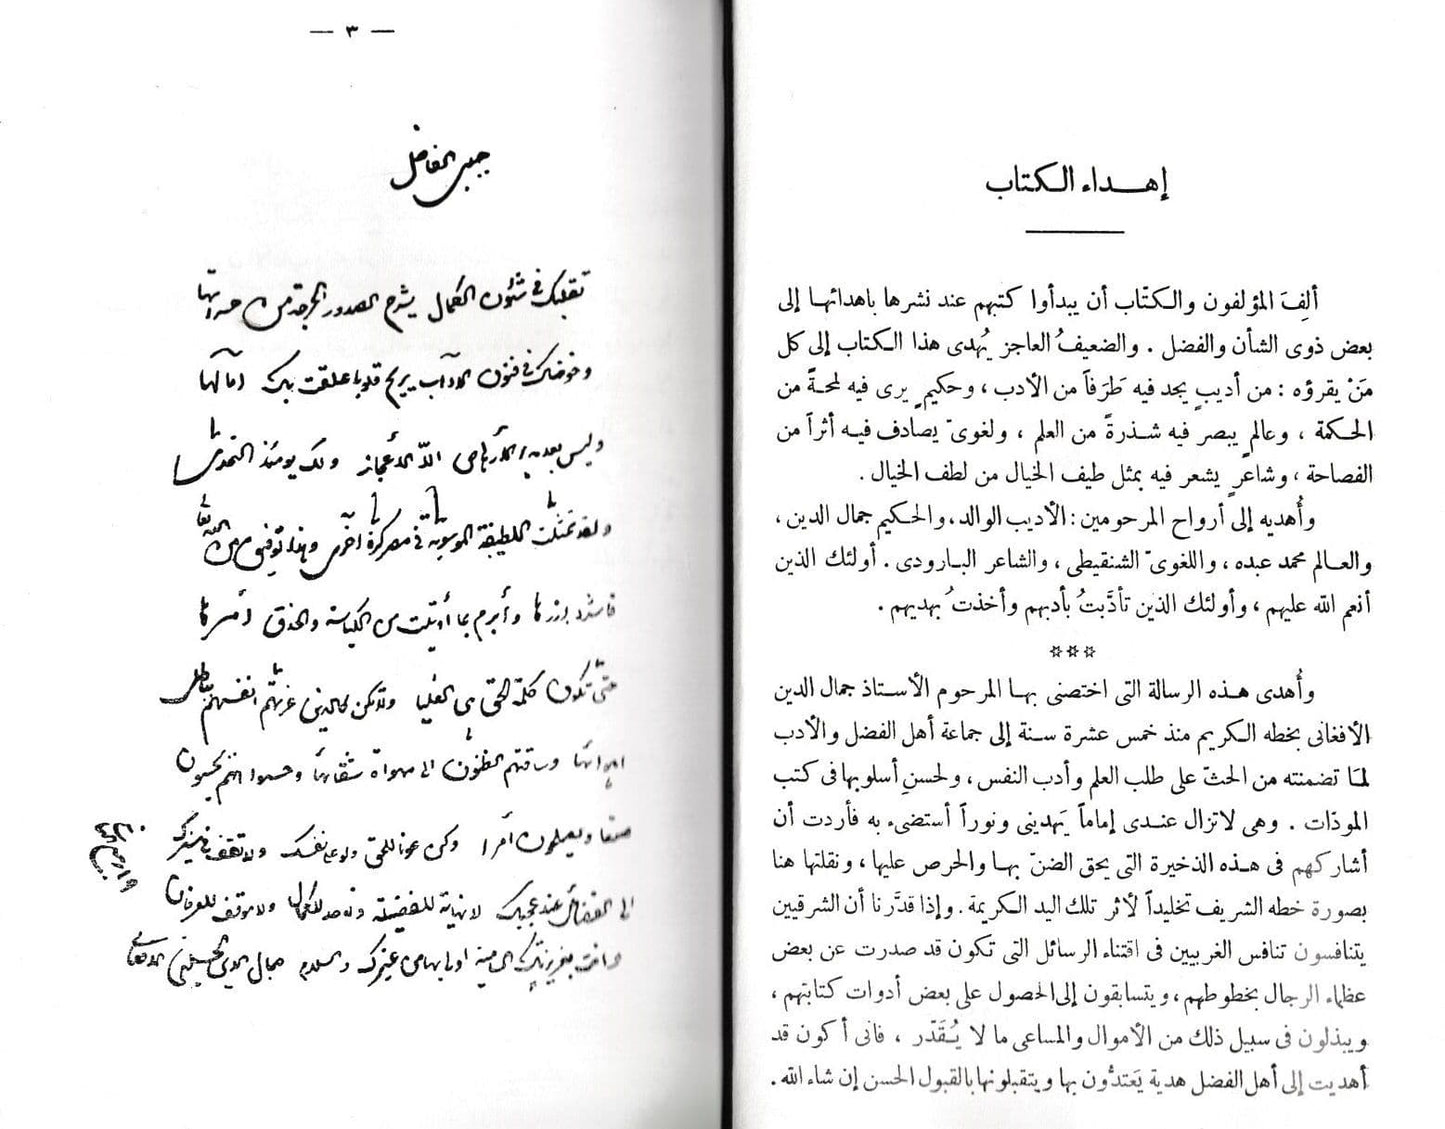 إهداء الكتاب
ألِفَ المؤلفون والكتّاب أن يبدأوا كتبهم عند نشرها باهدائها إلى
بعض ذوى الشأن والفضل . والضعيفُ العاجز يُهدى هذا الكتاب إلى كل
مَنْ يقرؤه : من أديبٍ يجد فيه طَرَفاً من الأدب ، وحكيمٍ يرى فيه لمحةً من
الحكمة ، وعالمٍ يبصر فيه شذرةً من العلم ، ولغوىّ يصادف فيه أثراً من
الفصاحة ، وشاعرٍ يشعر فيه بمثل طيف الخيال من لطف الخيال .
وأُهديه إلى أرواح المرحومين : الأديب الوالد ، والحكيم جمال الدين ،
والعالم محمد عبده ، واللغوىّ الشنقيطى ، والشاعر البارودى . أولئك الذين
أنعم الله عليهم ، وأولئك الذين تأدَّبتُ بأدبهم وأخذتُ بهديهم .
***
وأُهدى هذه الرسالة التى اختصنى بها المرحوم الأستاذ جمال الدين
الأفغانى بخطه الكريم منذ خمس عشرة سنة إلى جماعة أهل الفضل والأدب
لمَا تضمنته من الحثّ على طلب العلم وأدب النفس ، ولحسنِ أسلوبها فى كتب
الموذات . وهى لاتزال عندى إماماً يَهدينى ونوراً أستضىء به فأردت أن
أشاركهم فى هذه الذخيرة التى يحق الضنّ بها والحرص عليها ، ونقلتها هنا
بصورة خطه الشريف تخليداً لأثر تلك اليد الكريمة . وإذا قدَّرنا أن الشرقيين
يتنافسون تنافس الغربيين فى اقتناء الرسائل التى تكون قد صدرت عن بعض
عظماء الرجال بخطوطهم ، ويتسابقون إلى الحصول على بعض أدوات كتابتهم ،
ويبذلون فى سبيل ذلك من الأموال والمساعى ما لا يُقَدّر ، فانى أكون قد
أهديت إلى أهل الفضل هدية يَعتدُّون بها ويتقبلونها بالقبول الحسن إن شاء الله .
— ٣ —
حبيبى الفاضل
تقلبك فى شئون الكمال يشرح الصدور الحرجة من حسراتها
وخوضك فى فنون الآداب يريح قلوبا علقت بك آمالها
وليس بعد الارهاص الا الأعجاز ولك يومئذ التحدى
ولقد تمثلت اللطيفة الموسوية فى مصر كرة اخرى وهذا توفيق من الله تعالى
فاشدد ازرها وأبرم بما أوتيت من الكياسة والحذق أمرها
حتى تكون كلمة الحق هى العليا ولا تكن كالذين غرتهم انفسهم بباطل
اهوائها وساقتهم الظنون الى مهواة شقائها وحسبوا انهم يحسنون
صنعا ويصلحون أمرا وكن عونا للحق ولو على نفسك ولا تقف فى سيرك
الى الفضائل عند عجبك لا نهاية للفضيلة ولا حد للكمال ولا موقف للعرفان
وانت بغريزتك السامية اولى بها من غيرك والسلام جمال الدين الحسينى الافغانى